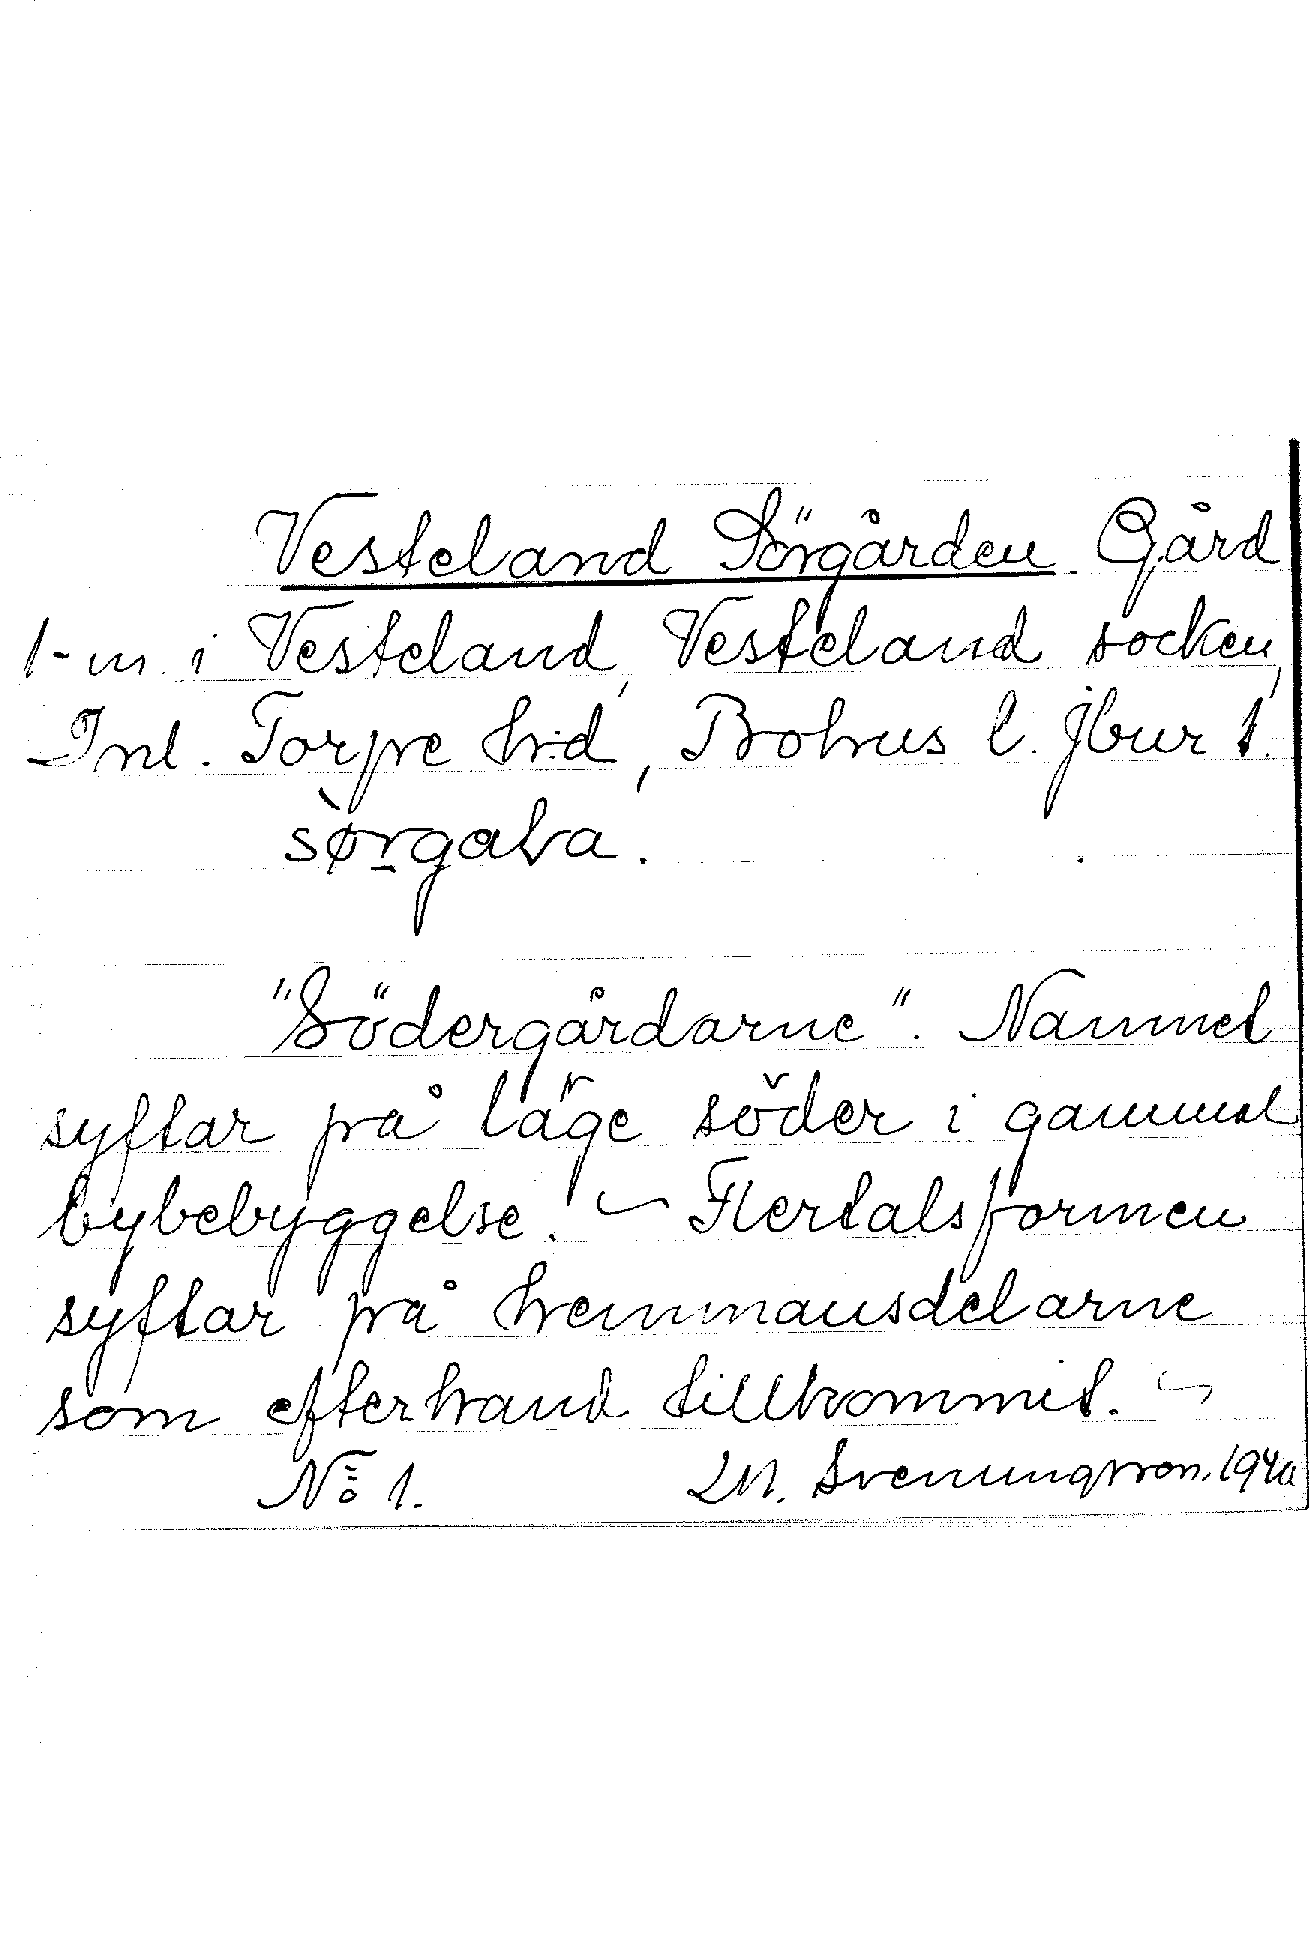 Vesteland Sörgården Gård
1-m i Vesteland, Vesteland socken,
Inl. Torpe h:d, Bohus l. Jbnr 1.
sørgaɫa.
"Södergårdarne". Namnet
syftar på läge söder i gammal
bybebyggelse. ~ Flertalsformen
syftar på hemmansdelarne
som efterhand tillkommit. ~
No 1. Svenungsson. 1940